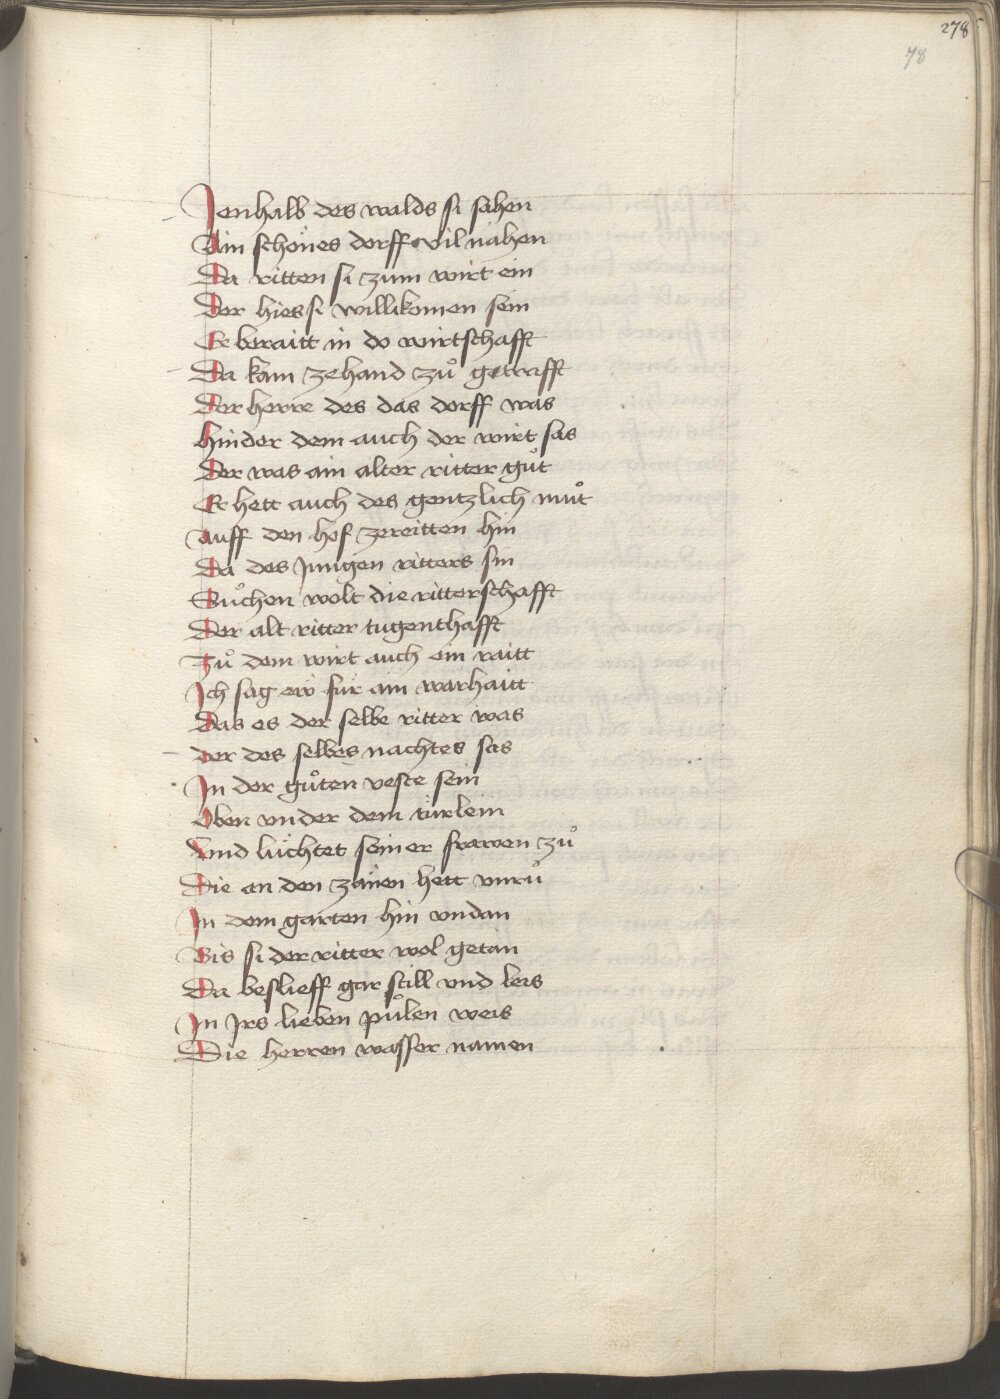 278
78
Jenhalb des walds si sahen
Ain schönes dorff vil nahen
Da ritten si zum wirt ein
Der hies si willikomen sein
Er beraitt in do wirtschafft
Da kam zehand zuͦ getrafft
Der herre des das dorff was
Hinder dem auch der wirt sas
Der was ain alter ritter guͦt
Er hett auch des gentzlich muͦt
Auff den hof zereitten hin
Da des Jungen ritters sin
Suͦchen wolt die ritterschafft
Der alt ritter tugenthafft
Zuͦ dem wirt auch ein raitt
Ich sag ew für ain warhaitt
Das es der selbe ritter was
Der des selbes nachtes sas
In der guͦten veste sein
Oben vnder dem türlein
Vnd lüchtet seiner frawen zuͦ
Die an den zänen hett vnruͦ
In dem garten hin vndan
Bis si der ritter wol getan
Da beslieff gar still vnd leis
In Jrs lieben puͦlen weis
Die herren wasser namen